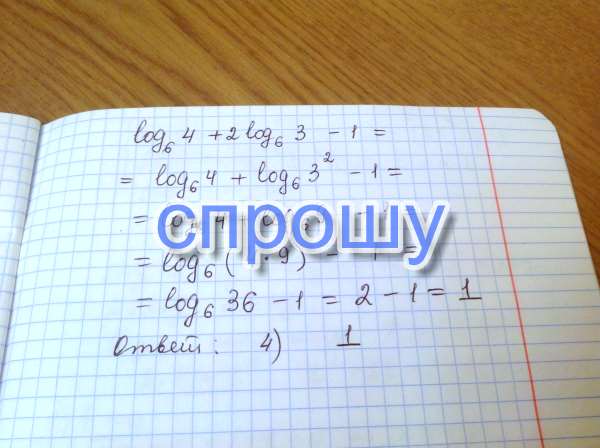 log₆ 4 + 2 log₆ 3 - 1 =
= log₆ 4 + log₆ 3² - 1 =
спрошу
= log₆ ( · 9) - 1 =
= log₆ 36 - 1 = 2 - 1 = 1
Ответ: 4) 1